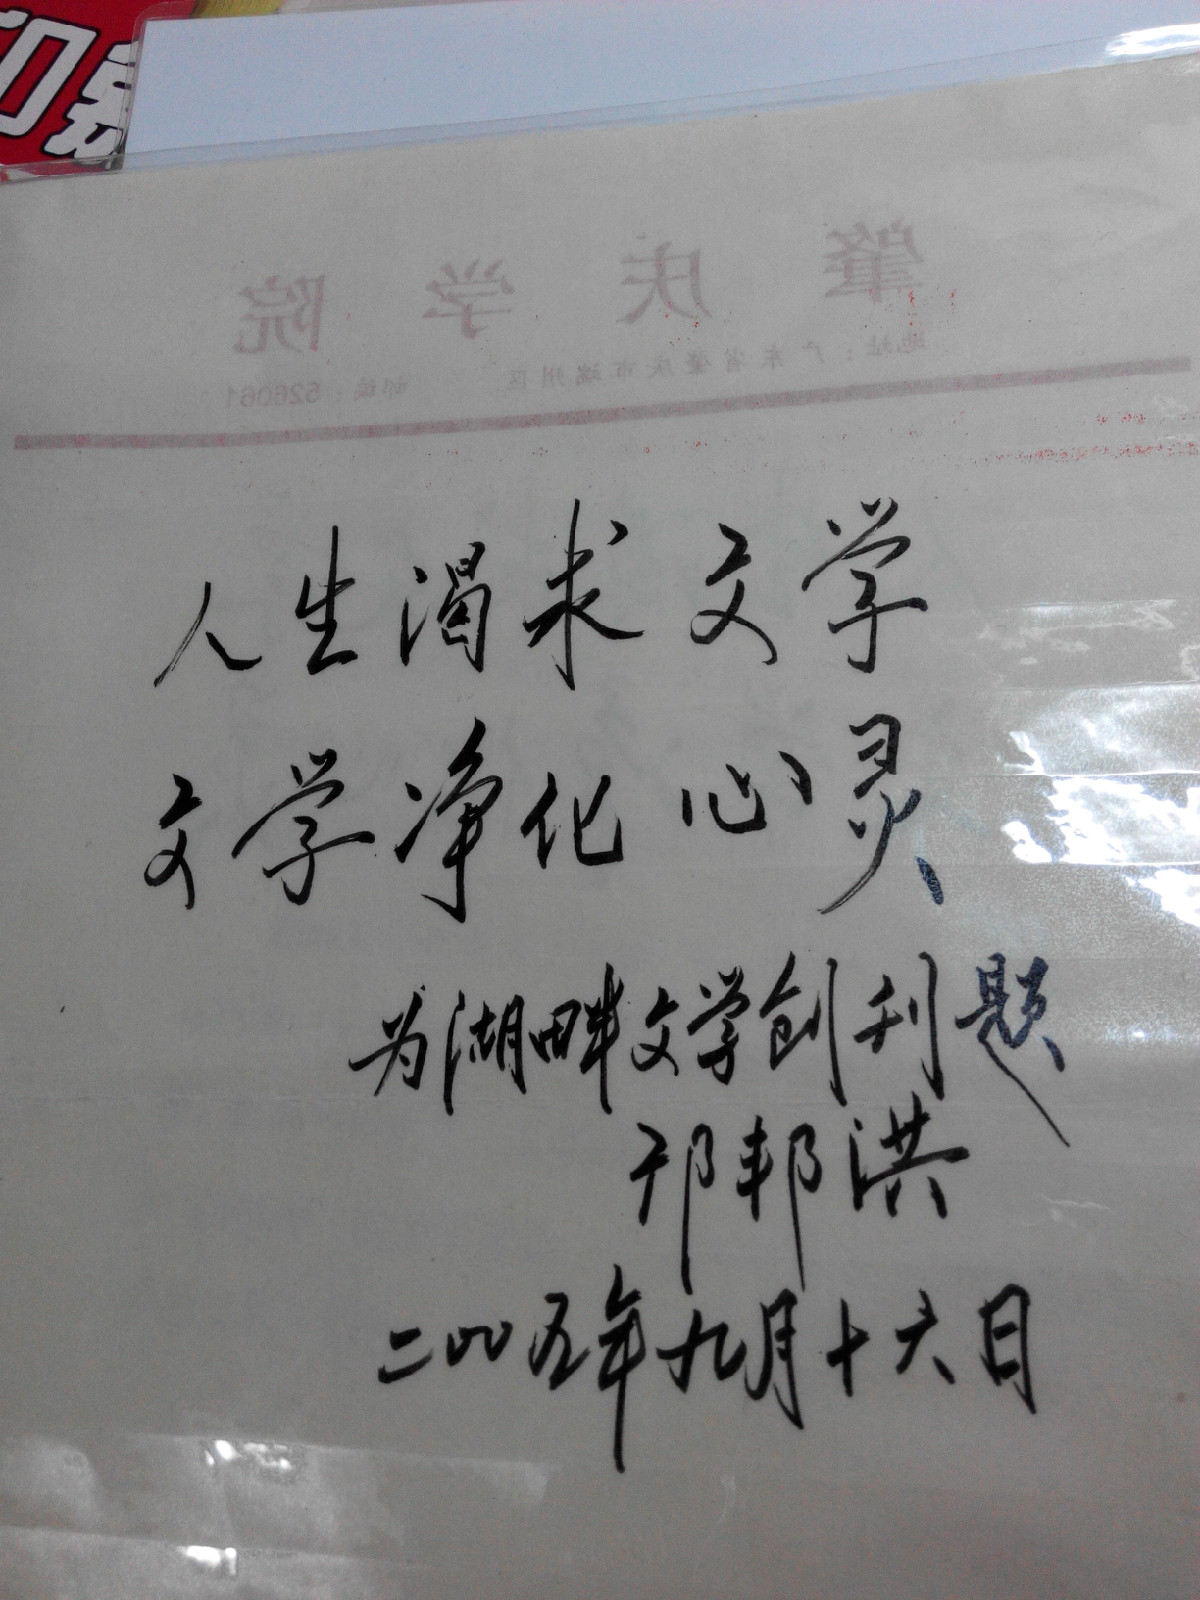 印象
肇庆学院
地址：广东省肇庆市端州区 邮编：526061
人生渴求文学
文学净化心灵
为湖畔文学创刊题
邢邦洪
二〇〇五年九月十六日